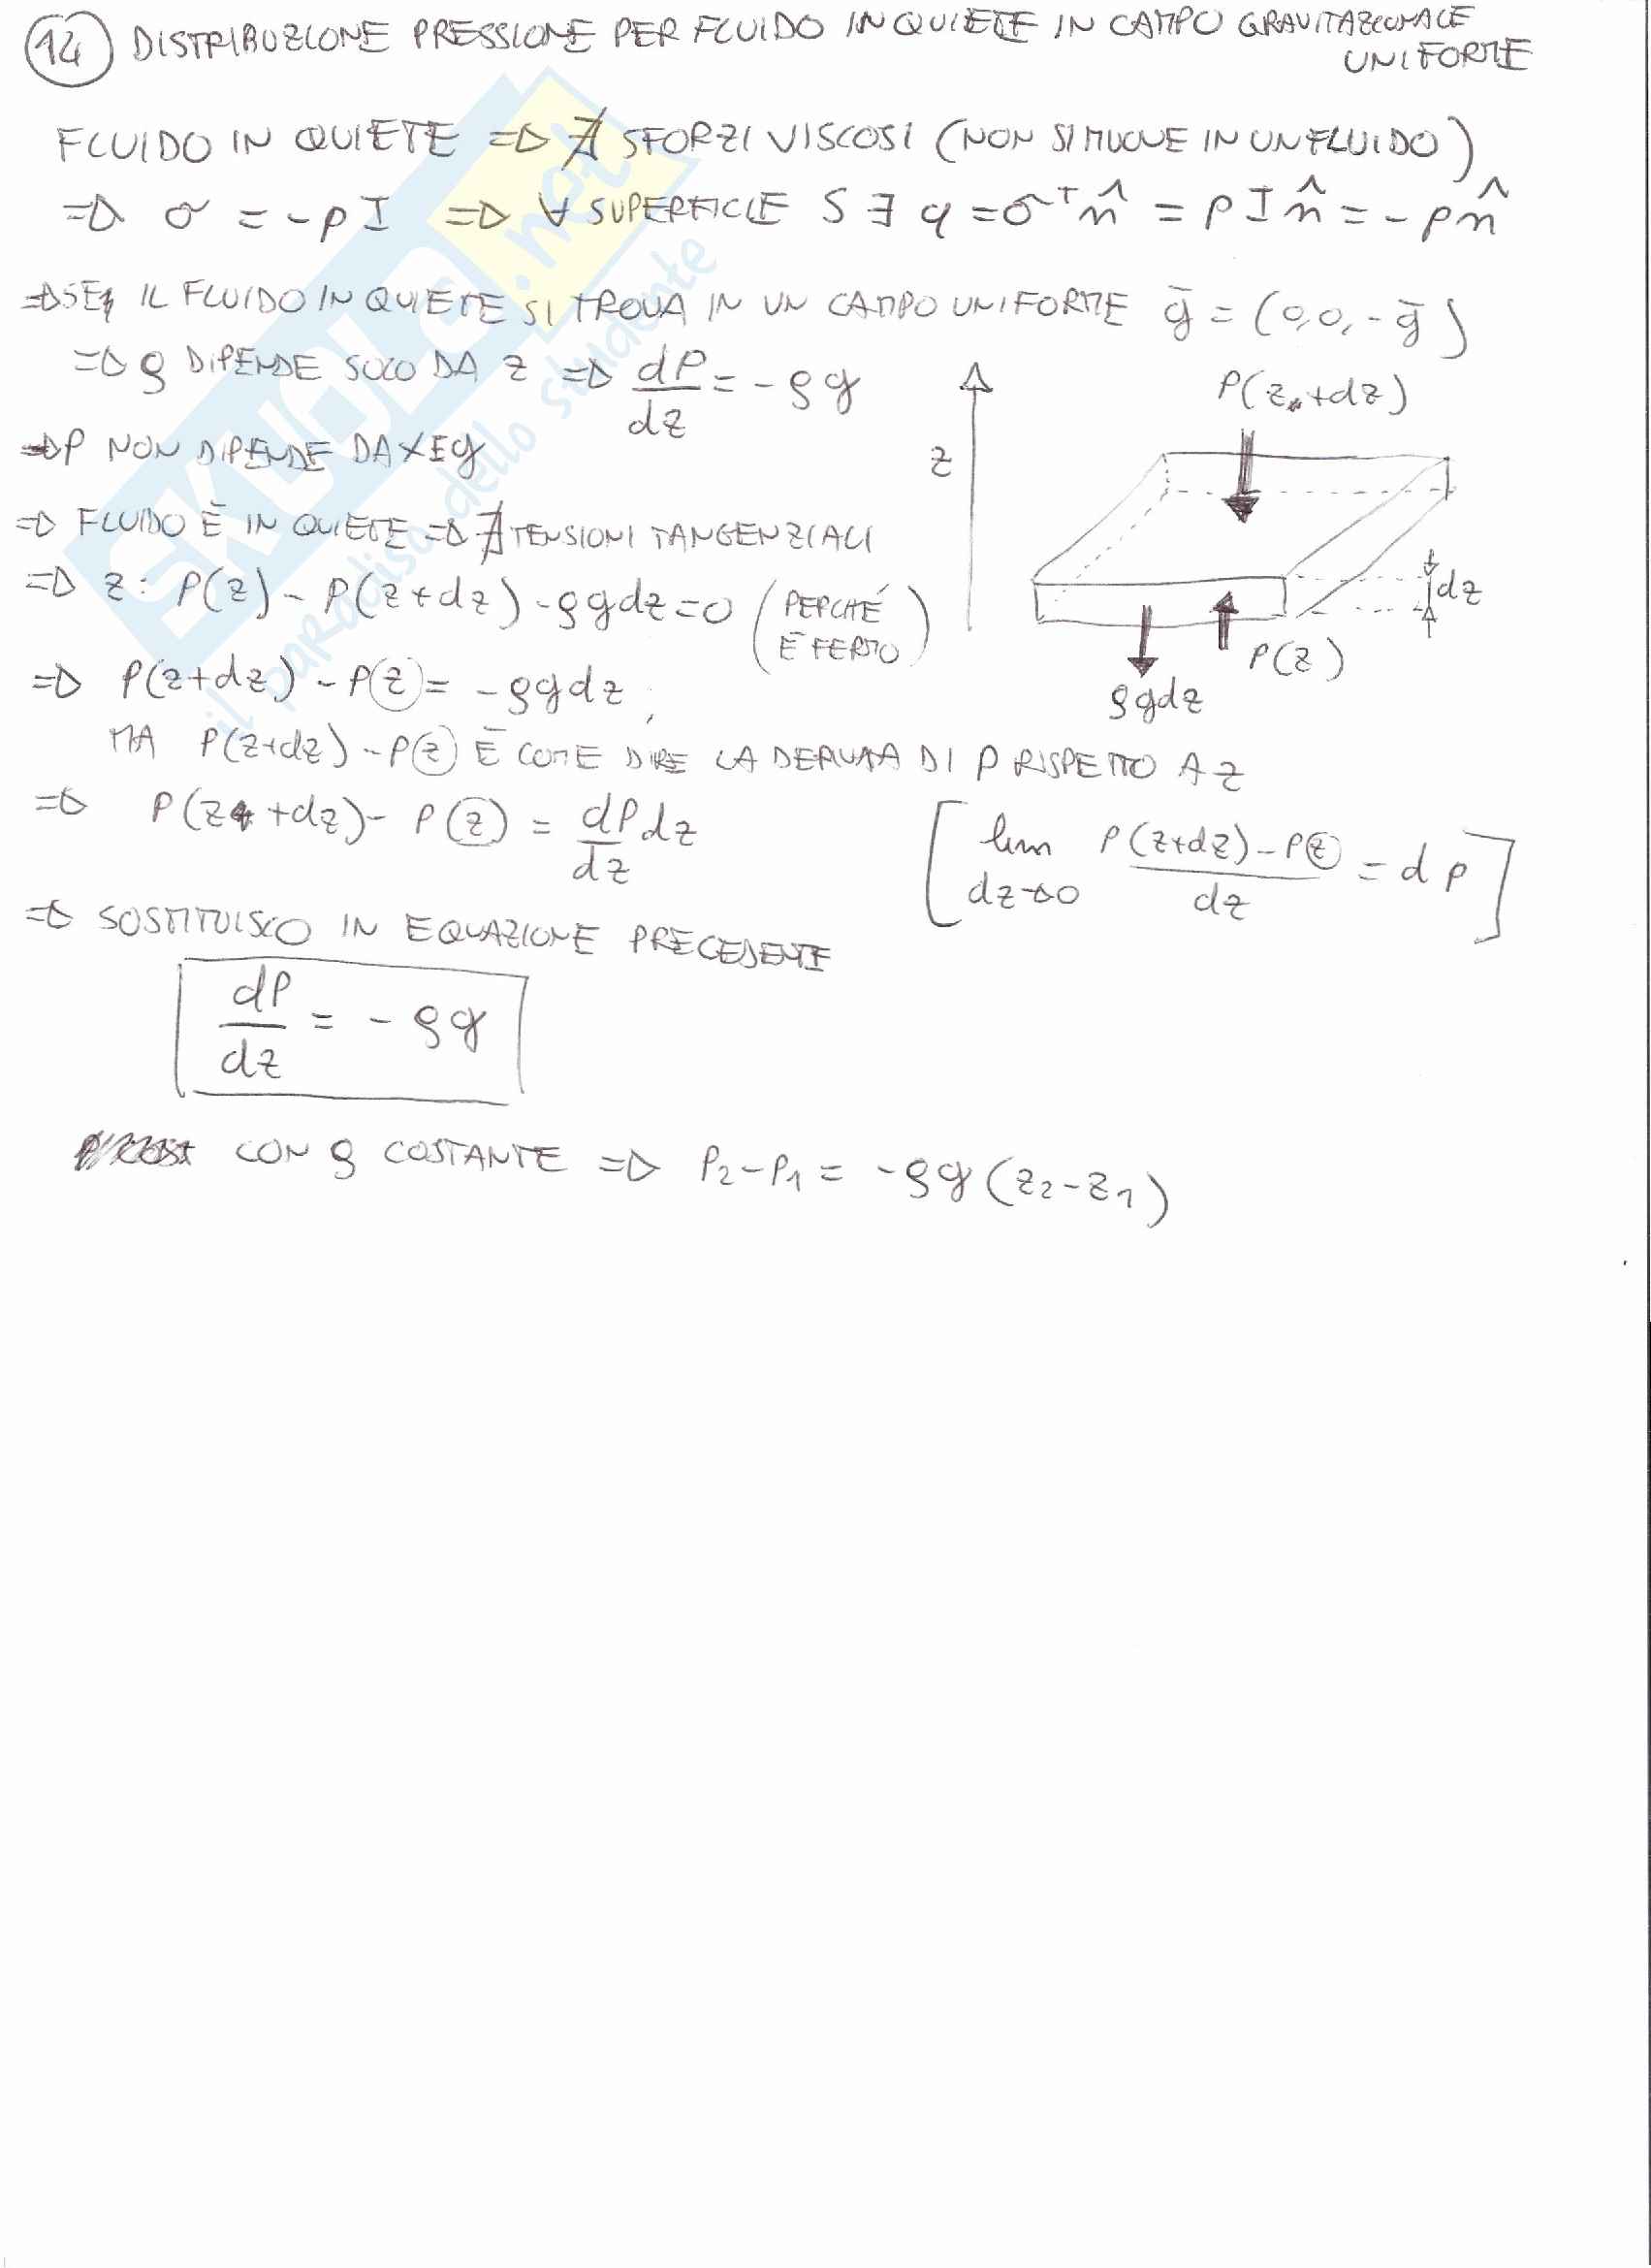 14 DISTRIBUZIONE PRESSIONE PER FLUIDO IN QUIETE IN CAMPO GRAVITAZIONALE
UNIFORME
FLUIDO IN QUIETE => ∄ SFORZI VISCOSI (NON SI MUOVE IN UN FLUIDO)
=> σ = -pI => ∀ SUPERFICIE S ∃ q = σᵀn̂ = pIn̂ = -pn̂
=> SE IL FLUIDO IN QUIETE SI TROVA IN UN CAMPO UNIFORME ḡ = (0,0,-ḡ)
=> ρ DIPENDE SOLO DA z => dP/dz = -ρg
=> P NON DIPENDE DA X E y
=> FLUIDO È IN QUIETE => ∄ TENSIONI TANGENZIALI
=> z: P(z) - P(z+dz) - ρgdz = 0 (PERCHÉ È FERMO)
=> P(z+dz) - P(z) = -ρgdz,
MA P(z+dz) - P(z) È COME DIRE LA DERIVATA DI P RISPETTO A z
=> P(z+dz) - P(z) = dP/dz dz
[lim dz→0 P(z+dz) - P(z) / dz = dp]
=> SOSTITUISCO IN EQUAZIONE PRECEDENTE
dP/dz = -ρg
CON ρ COSTANTE => P₂-P₁ = -ρg(z₂-z₁)
z
P(z+dz)
dz
P(z)
ρgdz
SKUOLA.net
il paradiso dello studente